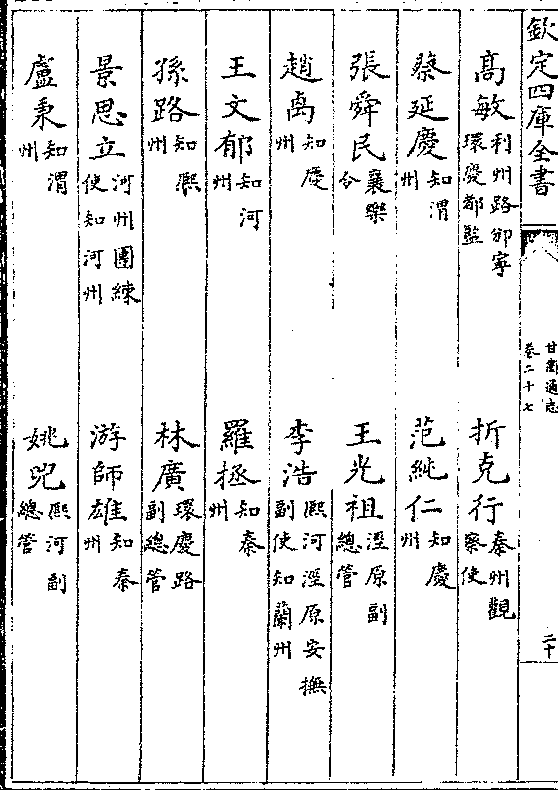 欽定四庫全書
甘肅通志
卷二十七
二十
高敏 利州路邠寧環慶都監 折克行 秦州觀察使
蔡延慶 知渭州 范純仁 知慶州
張舜民 襄樂令 王光祖 涇原副總管
趙禼 知慶州 李浩 熙河涇原安撫副使知蘭州
王文郁 知河州 羅拯 知秦州
孫路 知熙州 林廣 環慶路副總管
景思立 河州團練使知河州 游師雄 知秦州
盧秉 知渭州 姚兕 熙河副總管